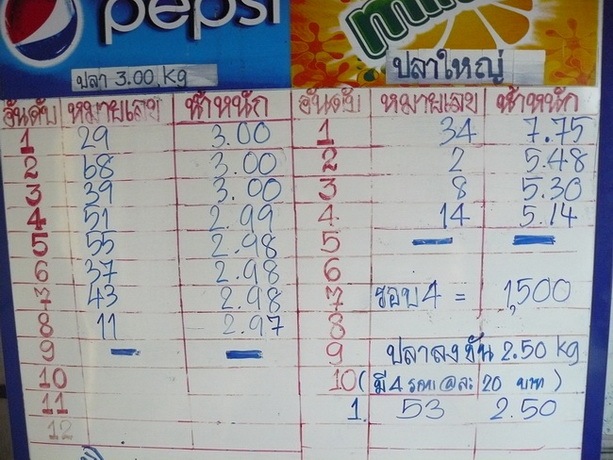 pepsi
ปลา 3.00 kg
ปลาใหญ่
อันดับ หมายเลข น้ำหนัก อันดับ หมายเลข น้ำหนัก
1 29 3.00 1 34 7.75
2 68 3.00 2 2 5.48
3 39 3.00 3 8 5.30
4 51 2.99 4 14 5.14
5 55 2.98 5 — —
6 37 2.98 6
7 43 2.98 7 รอบ 4 = 1,500
8 11 2.97 8
9 — — 9 ปลาลงขัน 2.50 kg
10 10 (มี 4 @ละ 20 บาท)
11 1 53 2.50
12